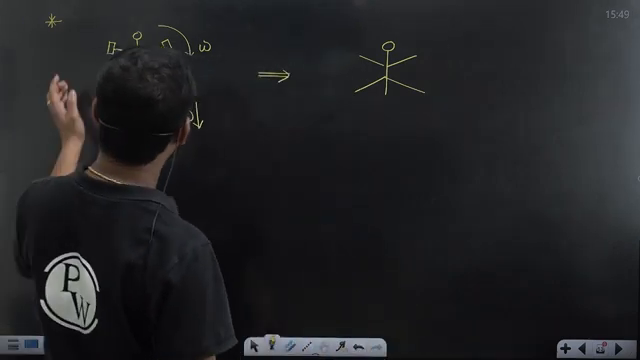 15:49
*
ω
PW